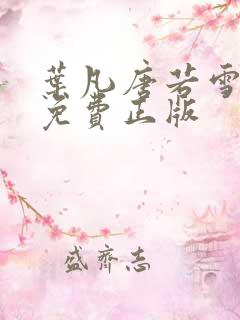 葉凡唐若雪
免費正版
盛齊志